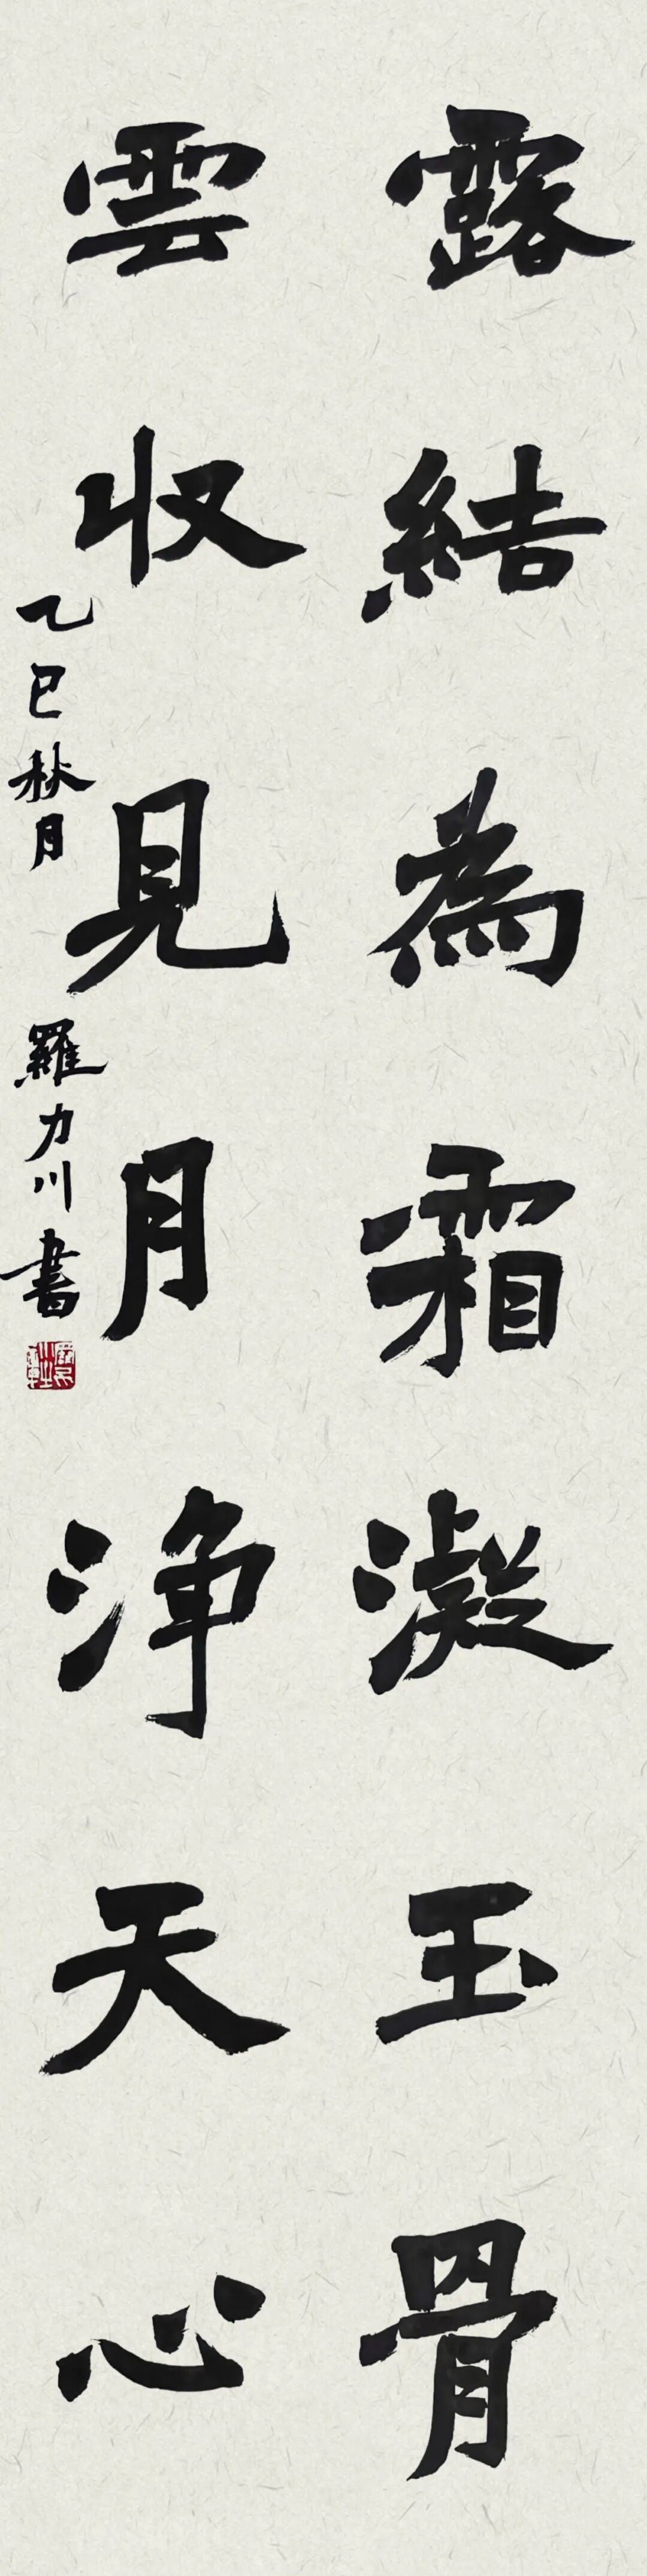 露結為霜凝玉骨
雲収見月净天心
乙巳秋月
羅力川書